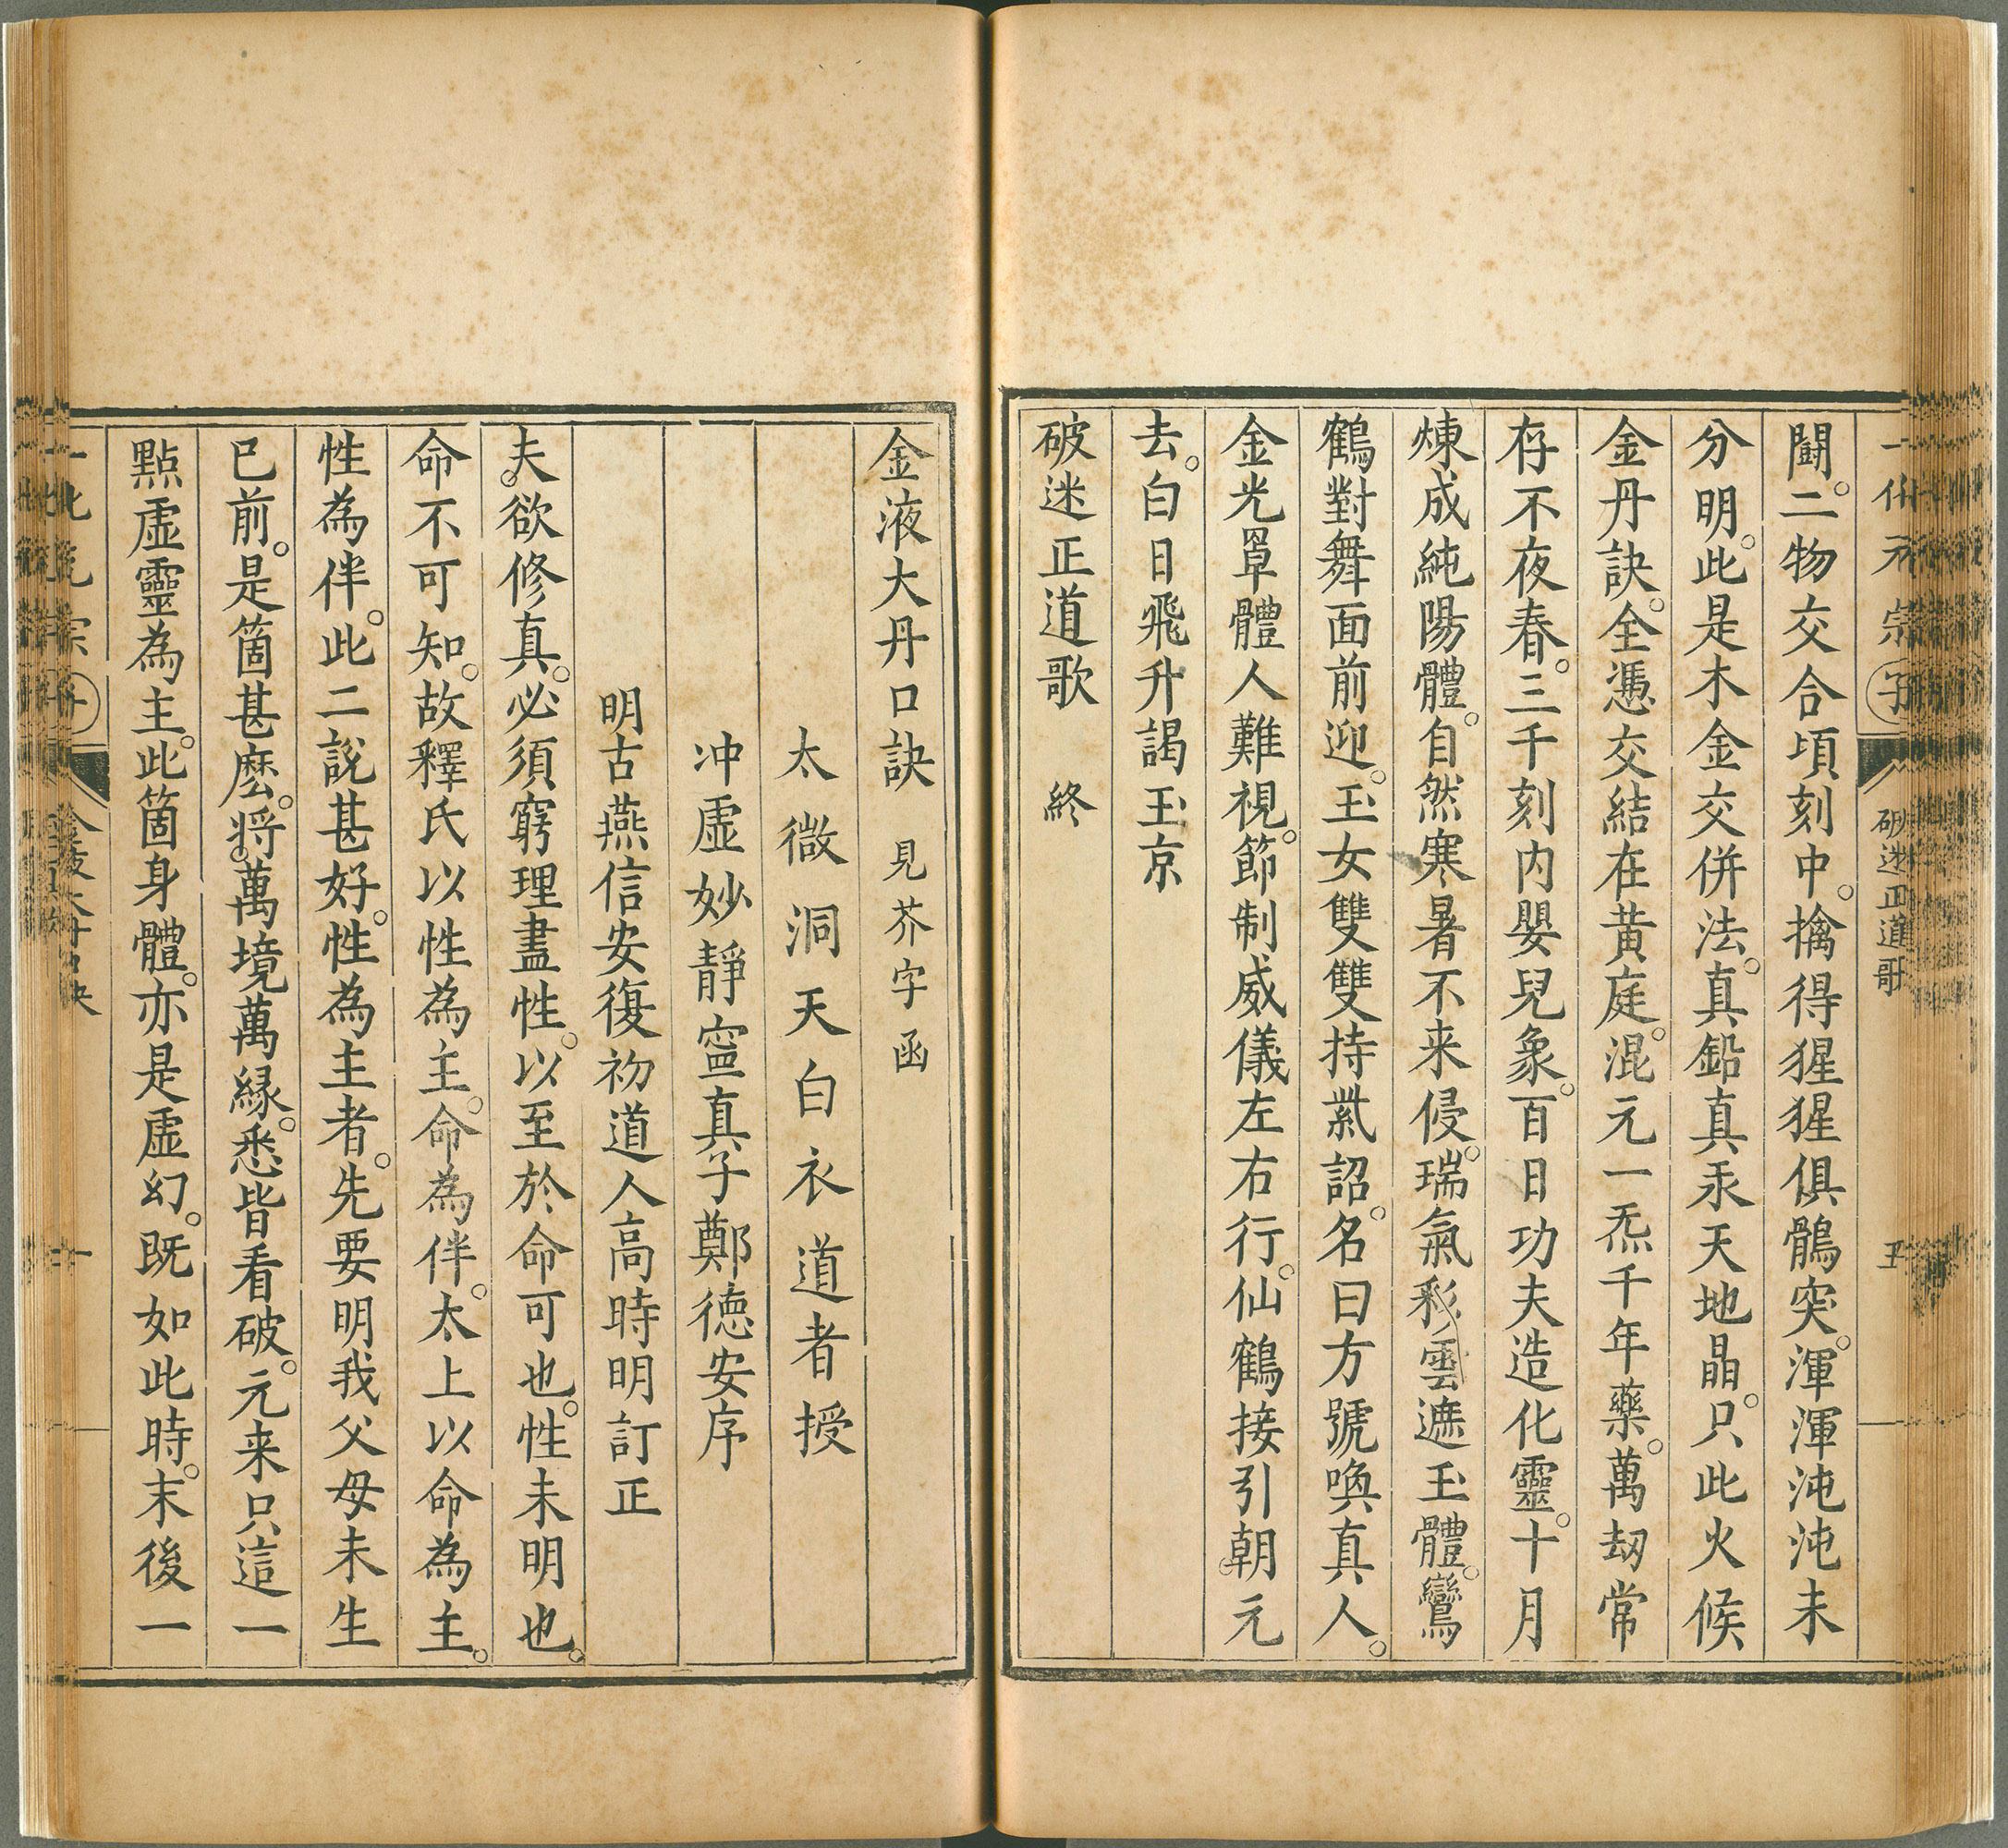 闘。二物交合頃刻中。擒得猩猩俱鶻突。渾渾沌沌未
分明。此是木金交併法。真鉛真汞天地晶。只此火候
金丹訣。全憑交結在黄庭。混元一炁千年藥。萬刼常
存不夜春。三千刻内嬰兒象。百日功夫造化靈。十月
煉成純陽體。自然寒暑不来侵。瑞氣彩雲遮玉體。鸞
鶴對舞面前迎。玉女雙雙持紫詔。名曰方號喚真人。
金光罩體人難視。節制威儀左右行。仙鶴接引朝元
去。白日飛升謁玉京
破迷正道歌　終
破迷正道歌
五
金液大丹口訣　見芥字函
太微洞天白衣道者授
冲虚妙靜寍真子鄭德安序
明古燕信安復初道人高時明訂正
夫。欲修真。必須窮理盡性。以至於命可也。性未明也。
命不可知。故釋氏以性為主。命為伴。太上以命為主。
性為伴。此二說甚好。性為主者。先要明我父母未生
已前。是箇甚麽。將。萬境萬緣。悉皆看破。元来只這一
點虚靈為主。此箇身體。亦是虚幻。既如此時。末後一